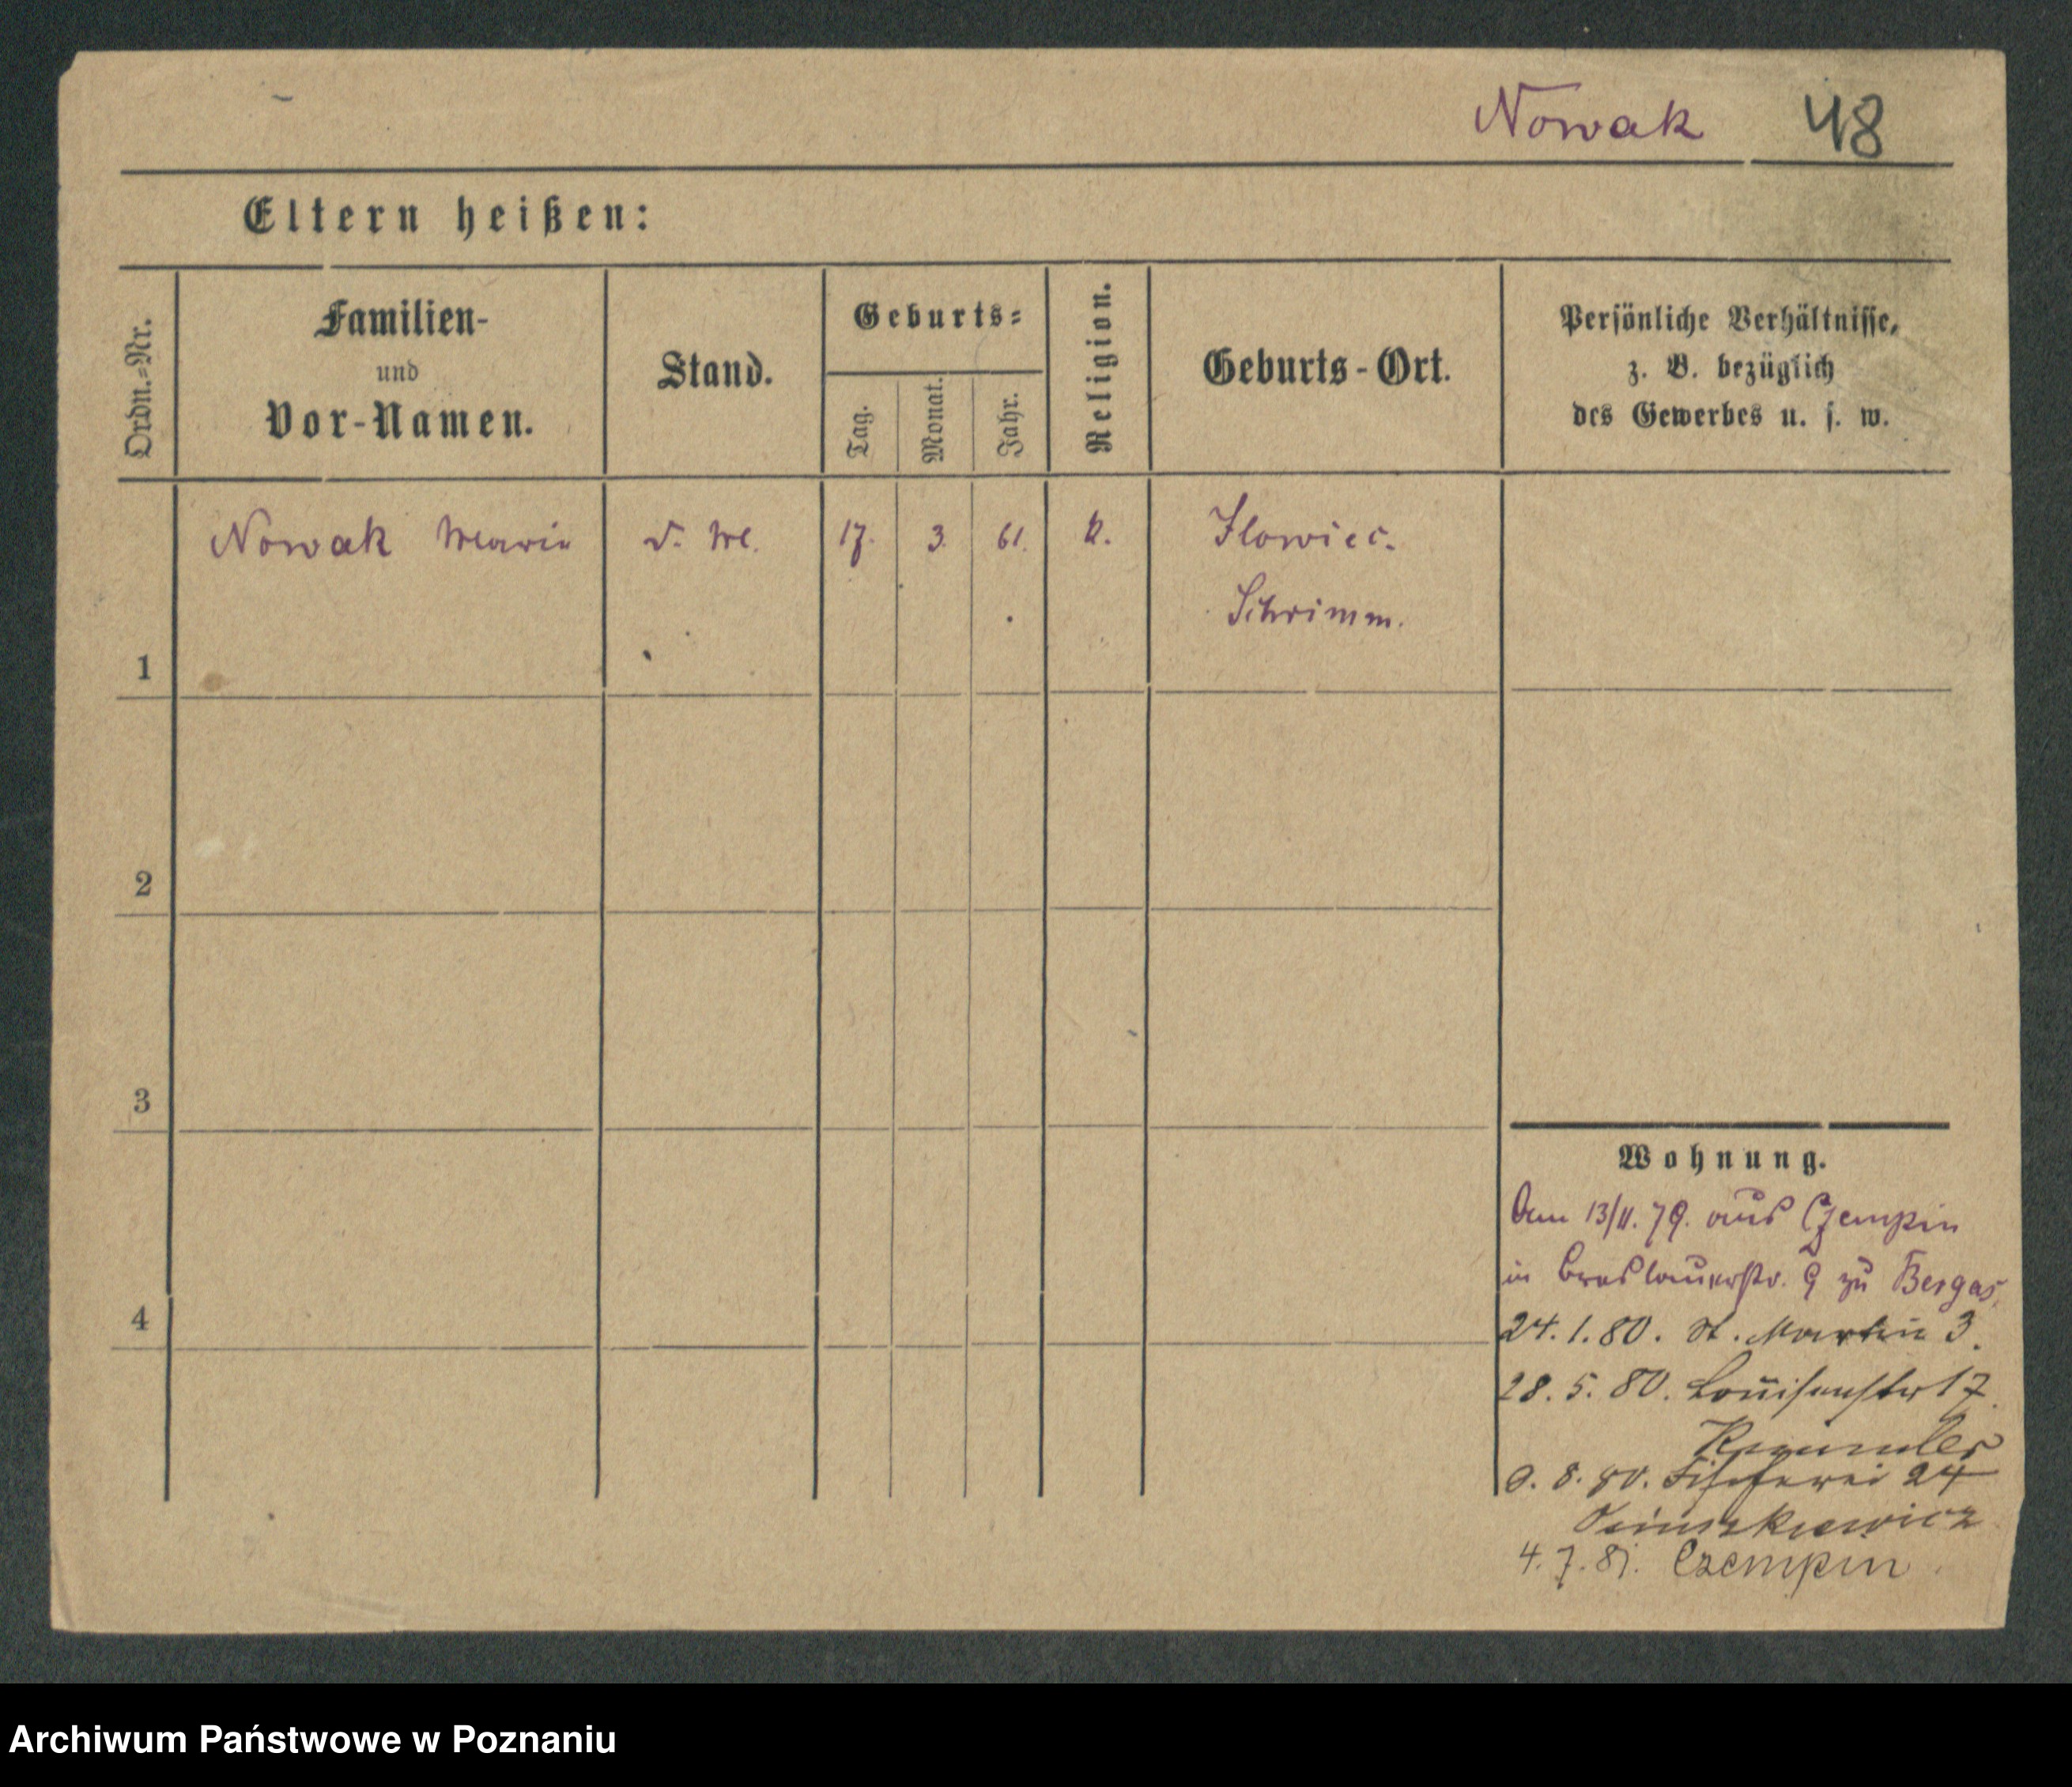 Nowak 48
Eltern heißen:
Ordn.=Nr.
Familien-
und
Vor-Namen.
Stand.
Geburts=
Tag.
Monat.
Jahr.
Religion.
Geburts-Ort.
Persönliche Verhältnisse,
z. B. bezüglich
des Gewerbes u. s. w.
1 Nowak Marie d. M. 17. 3. 61. k. Ilowiec.
Schrimm.
2
3
4
Wohnung.
Am 13/11. 79. aus Czempin
in Breslauerstr. 9 zu Bergas.
24. 1. 80. St. Martin 3.
28. 5. 80. Louisenstr 17.
9. 8. 80. Fischerei 24
4. 7. 81. Czempin.
Archiwum Państwowe w Poznaniu